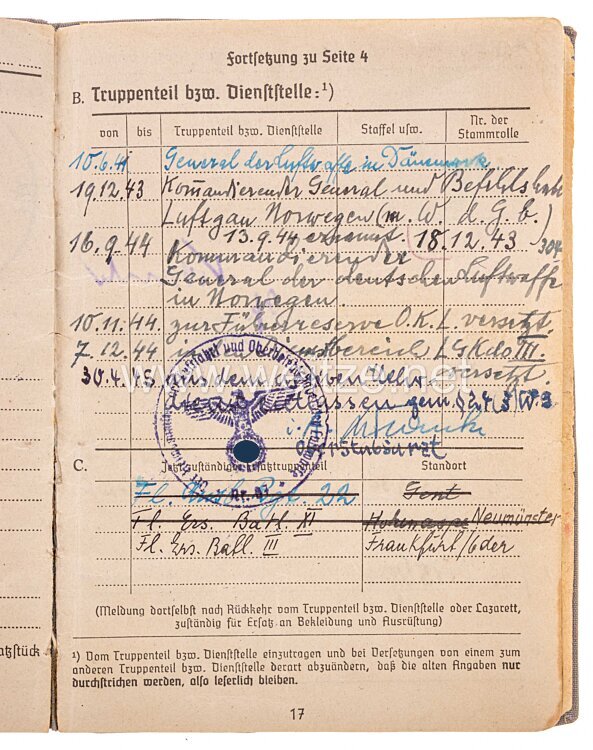 Fortsetzung zu Seite 4
B. Truppenteil bzw. Dienststelle:¹)
von bis Truppenteil bzw. Dienststelle Staffel usw. Nr. der Stammrolle
10.6.41 General der Luftwaffe in Dänemark
19.12.43 Kommandierender General und Befehlshaber
Luftgau Norwegen (m. W. d. G. b.)
16.9.44 13.9.44 ernannt. 18.12.43
Kommandierender
General der deutschen Luftwaffe
in Norwegen.
10.11.44. zur Führerreserve O.K.L. versetzt.
7.12.44 LGKdo VII. versetzt.
30.4.45 aus dem aktiven Wehr-
dienst entlassen gem §
Oberstabsarzt
www.weitze.net
Nr. 01
C. Jetzt zuständiger Ersatztruppenteil Standort
Fl. Rgt. 22 Gent
Fl. Ers. Batl. XI Neumünster
Fl. Ers. Batl. III Frankfurt/Oder
(Meldung dortselbst nach Rückkehr vom Truppenteil bzw. Dienststelle oder Lazarett,
zuständig für Ersatz an Bekleidung und Ausrüstung)
¹) Vom Truppenteil bzw. Dienststelle einzutragen und bei Versetzungen von einem zum
anderen Truppenteil bzw. Dienststelle derart abzuändern, daß die alten Angaben nur
durchstrichen werden, also leserlich bleiben.
17